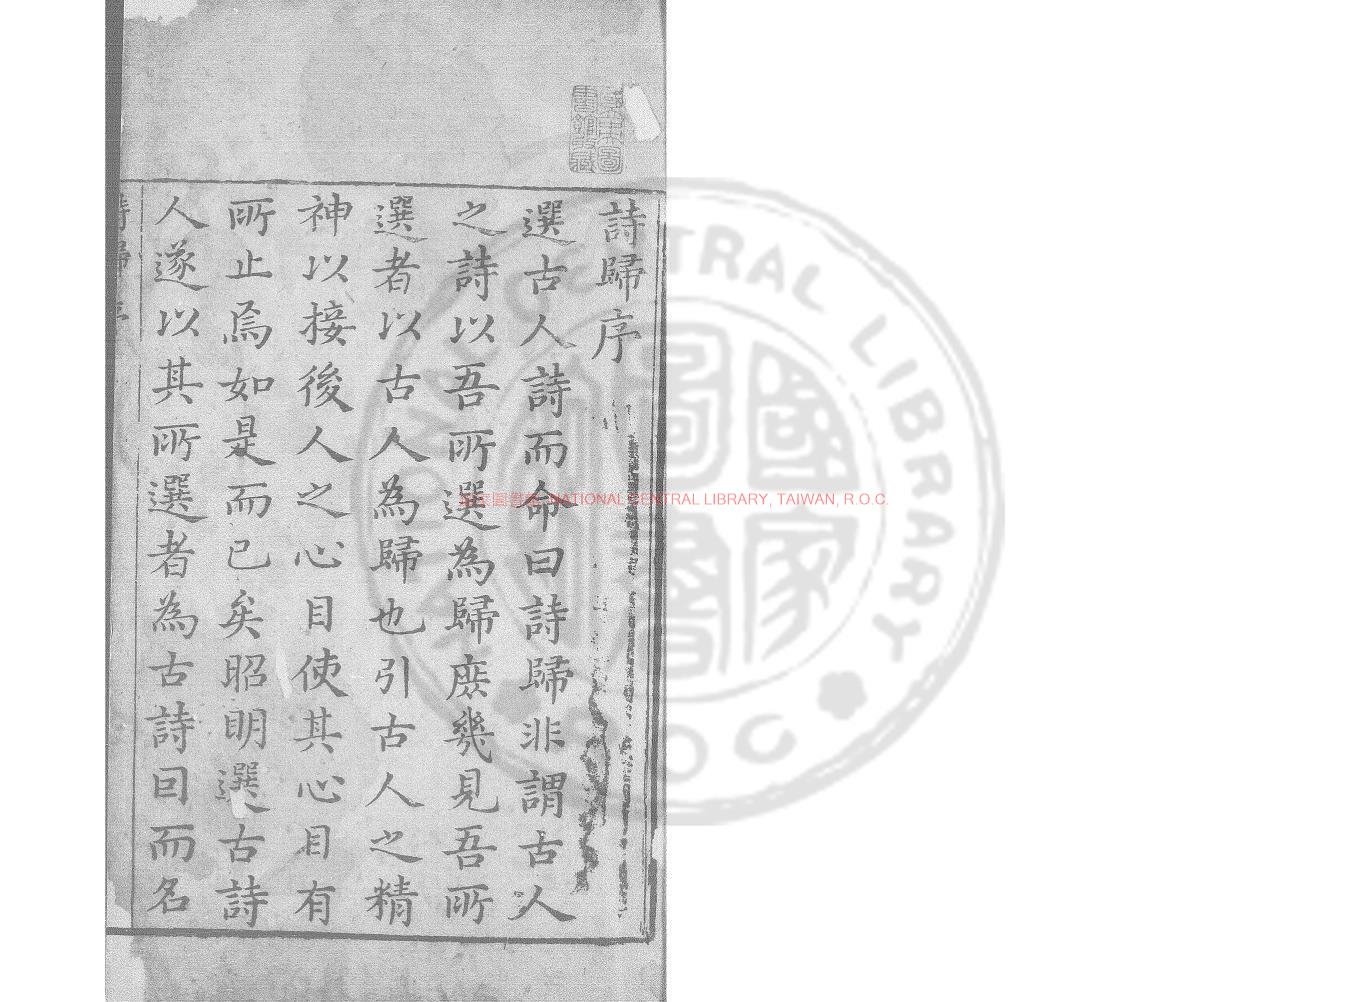 詩歸序
選古人詩而命曰詩歸非謂古人
之詩以吾所選為歸庶幾見吾所
選者以古人為歸也引古人之精
神以接後人之心目使其心目有
所止焉如是而已矣昭明選古詩
人遂以其所選者為古詩因而名
詩歸序
國家圖書館 NATIONAL CENTRAL LIBRARY, TAIWAN, R.O.C.